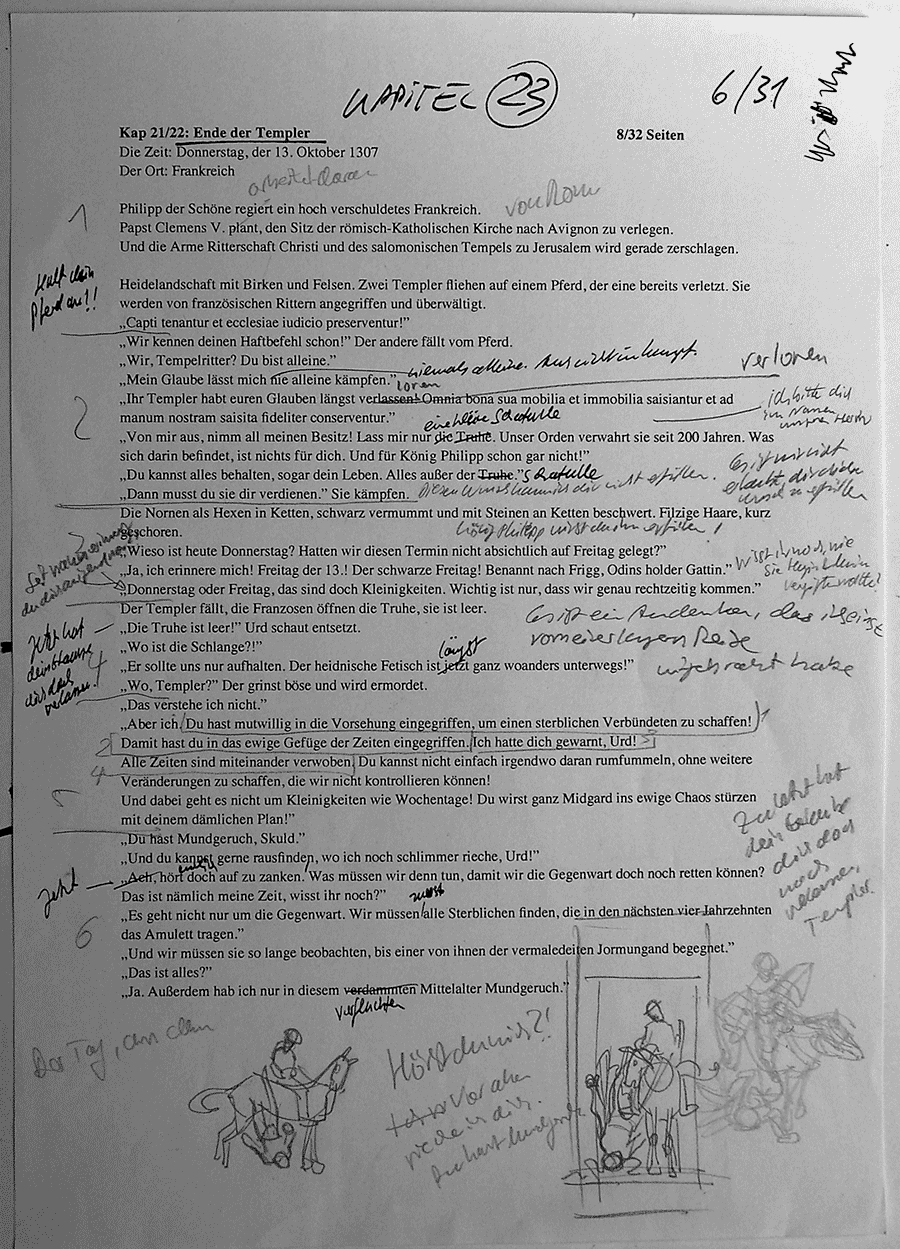 KAPITEL 23
6/31
Kap 21/22: Ende der Templer
8/32 Seiten
Die Zeit: Donnerstag, der 13. Oktober 1307
Der Ort: Frankreich
arbeitet daran
von Rom
1
Philipp der Schöne regiert ein hoch verschuldetes Frankreich.
Papst Clemens V. plant, den Sitz der römisch-Katholischen Kirche nach Avignon zu verlegen.
Und die Arme Ritterschaft Christi und des salomonischen Tempels zu Jerusalem wird gerade zerschlagen.
Halt dein
Pferd an!!
Heidelandschaft mit Birken und Felsen. Zwei Templer fliehen auf einem Pferd, der eine bereits verletzt. Sie
werden von französischen Rittern angegriffen und überwältigt.
„Capti tenantur et ecclesiae iudicio preserventur!"
„Wir kennen deinen Haftbefehl schon!" Der andere fällt vom Pferd.
„Wir, Tempelritter? Du bist alleine."
niemals alleine.
verloren
„Mein Glaube lässt mich nie alleine kämpfen."
loren
„Ihr Templer habt euren Glauben längst verlassen! Omnia bona sua mobilia et immobilia saisiantur et ad
manum nostram saisita fideliter conserventur."
ich bitte dich
im Namen
unseres Herrn
2
eine kleine Schatulle
„Von mir aus, nimm all meinen Besitz! Lass mir nur die Truhe. Unser Orden verwahrt sie seit 200 Jahren. Was
sich darin befindet, ist nichts für dich. Und für König Philipp schon gar nicht!"
„Du kannst alles behalten, sogar dein Leben. Alles außer der Truhe." Schatulle
„Dann musst du sie dir verdienen." Sie kämpfen.
Diesen Wunsch kann ich dir nicht erfüllen.
Es ist mir nicht
erlaubt, dir diesen
Wunsch zu erfüllen
Die Nornen als Hexen in Ketten, schwarz vermummt und mit Steinen an Ketten beschwert. Filzige Haare, kurz
geschoren.
König Philipp wirst du ihn erfüllen!
3
„Wieso ist heute Donnerstag? Hatten wir diesen Termin nicht absichtlich auf Freitag gelegt?"
„Ja, ich erinnere mich! Freitag der 13.! Der schwarze Freitag! Benannt nach Frigg, Odins holder Gattin."
„Donnerstag oder Freitag, das sind doch Kleinigkeiten. Wichtig ist nur, dass wir genau rechtzeitig kommen."
Wisst ihr noch, wie
Der Templer fällt, die Franzosen öffnen die Truhe, sie ist leer.
„Die Truhe ist leer!" Und schaut entsetzt.
Es ist ein Andenken, das ich einst
von einer langen Reise
mitgebracht habe
„Wo ist die Schlange?!"
längst
„Er sollte uns nur aufhalten. Der heidnische Fetisch ist jetzt ganz woanders unterwegs!"
4
„Wo, Templer?" Der grinst böse und wird ermordet.
„Das verstehe ich nicht."
„Aber ich. Du hast mutwillig in die Vorsehung eingegriffen, um einen sterblichen Verbündeten zu schaffen! 1
2 Damit hast du in das ewige Gefüge der Zeiten eingegriffen. Ich hatte dich gewarnt, Urd! 3
4 Alle Zeiten sind miteinander verwoben. Du kannst nicht einfach irgendwo daran rumfummeln, ohne weitere
Veränderungen zu schaffen, die wir nicht kontrollieren können!
5
Und dabei geht es nicht um Kleinigkeiten wie Wochentage! Du wirst ganz Midgard ins ewige Chaos stürzen
mit deinem dämlichen Plan!"
Zuletzt hat
dein Glaube
dich doch
noch
verlassen,
Templer.
„Du hast Mundgeruch, Skuld."
„Und du kannst gerne rausfinden, wo ich noch schlimmer rieche, Urd!"
Jetzt
endlich
„Ach, hört doch auf zu zanken. Was müssen wir denn tun, damit wir die Gegenwart doch noch retten können?
Das ist nämlich meine Zeit, wisst ihr noch?"
zuerst
„Es geht nicht nur um die Gegenwart. Wir müssen alle Sterblichen finden, die in den nächsten vier Jahrzehnten
das Amulett tragen."
6
„Und wir müssen sie so lange beobachten, bis einer von ihnen der vermaledeiten Jormungand begegnet."
„Das ist alles?"
„Ja. Außerdem hab ich nur in diesem verdammten Mittelalter Mundgeruch."
verfluchten
Der Tag, an dem
Hörst du mich?!
Vor allem
rieche ich dich.
Du hast Mundgeruch